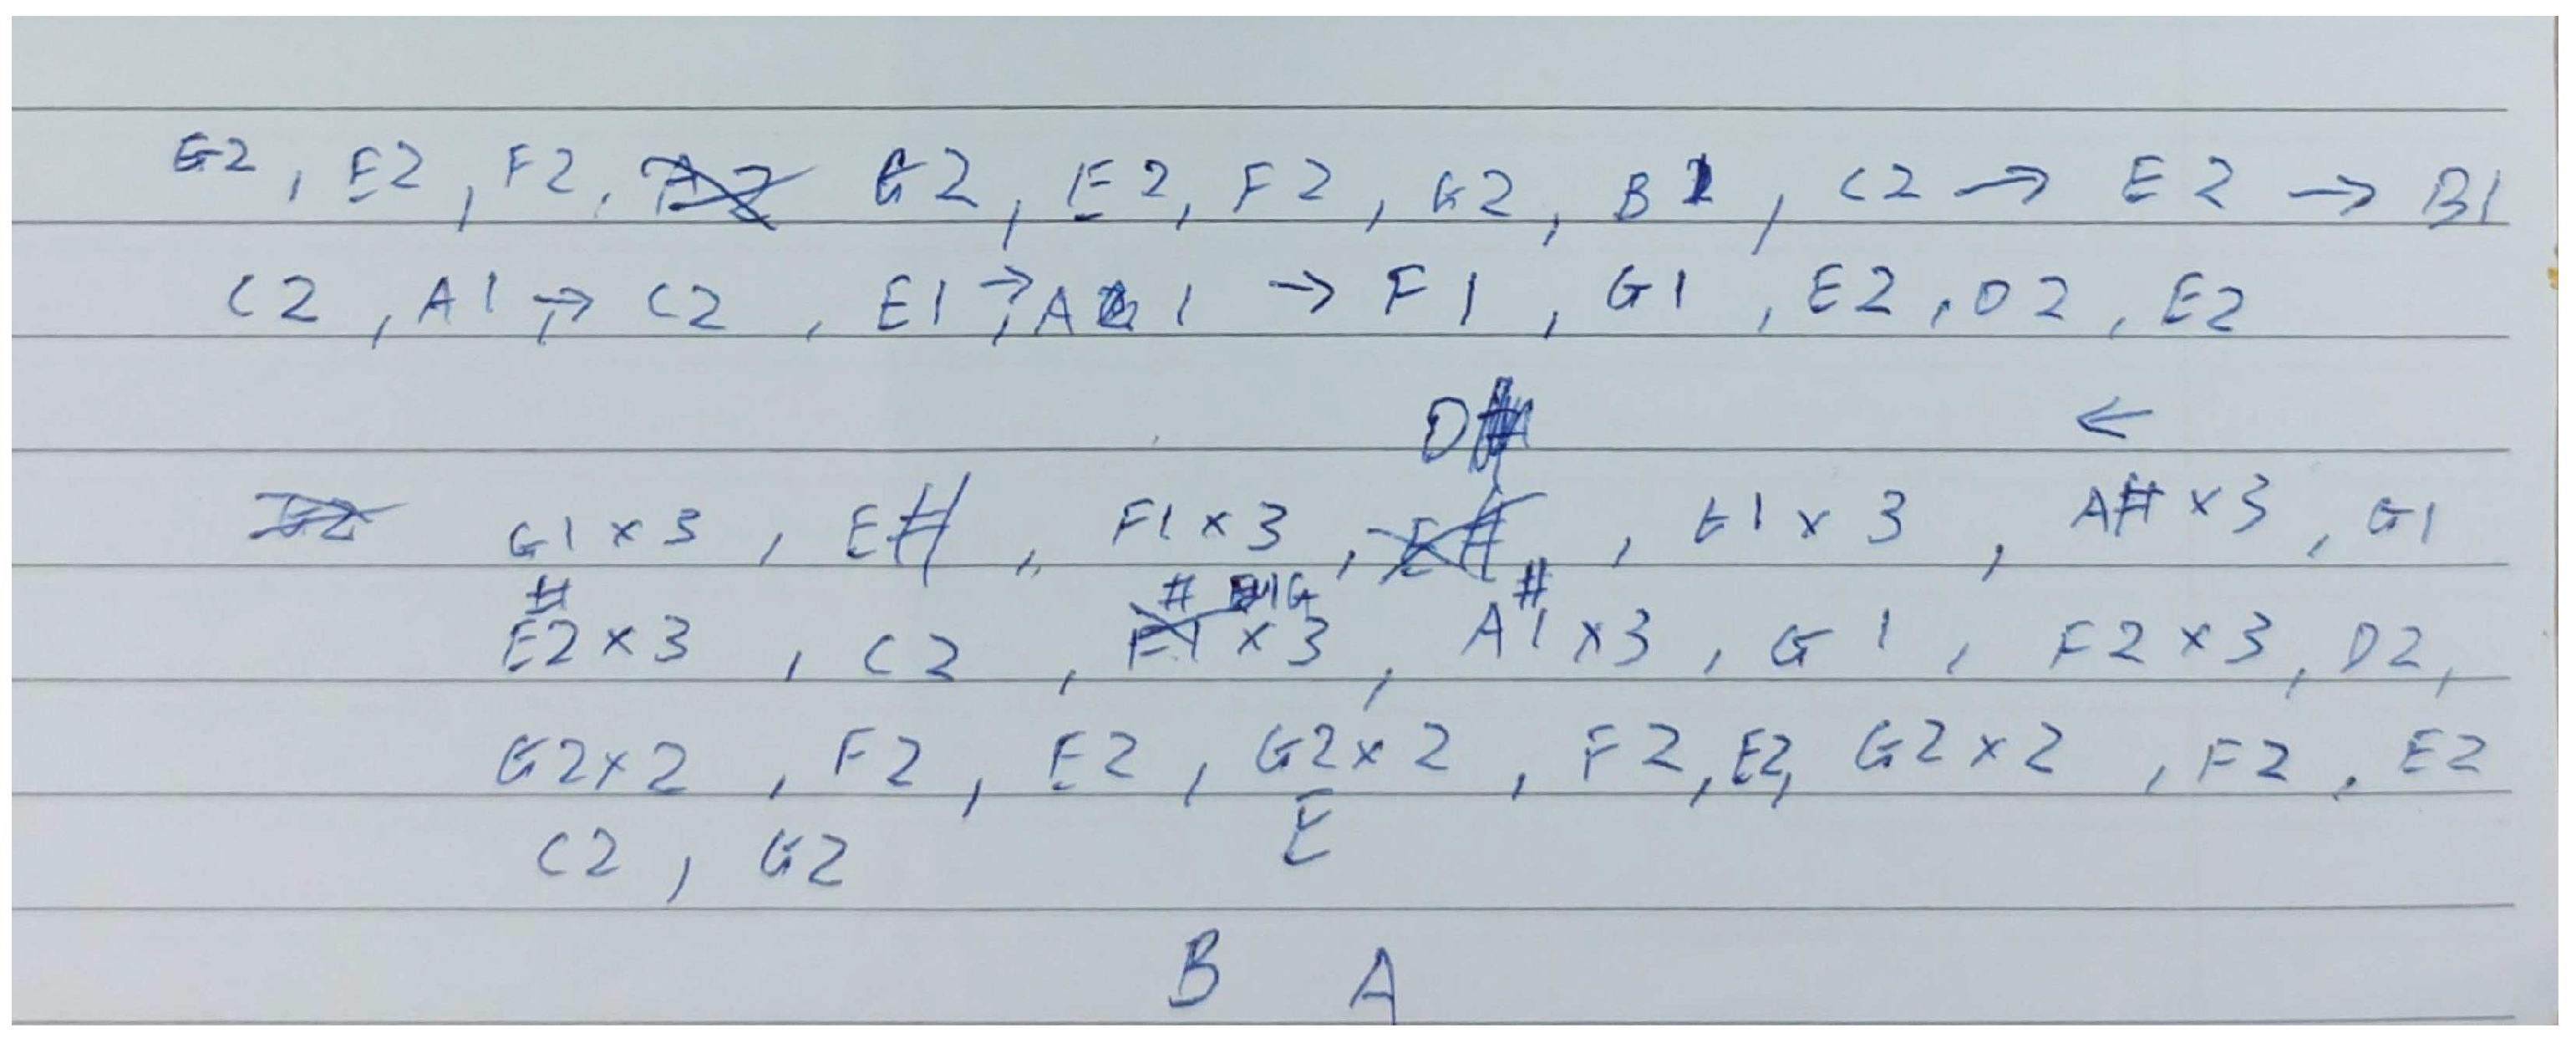 G2, E2, F2, G2, E2, F2, G2, B1, C2 → E2 → B1
C2, A1 → C2, E1 →, A 1 → F1, G1, E2, D2, E2
D ←
G1 x 3, E#, F1 x 3, G1 x 3, A# x 3, G1
# # G #
E2 x 3, C2, x 3, A1 x 3, G1, F2 x 3, D2,
G2 x 2, F2, E2, G2 x 2, F2, E2, G2 x 2, F2, E2
C2, G2 E
B A